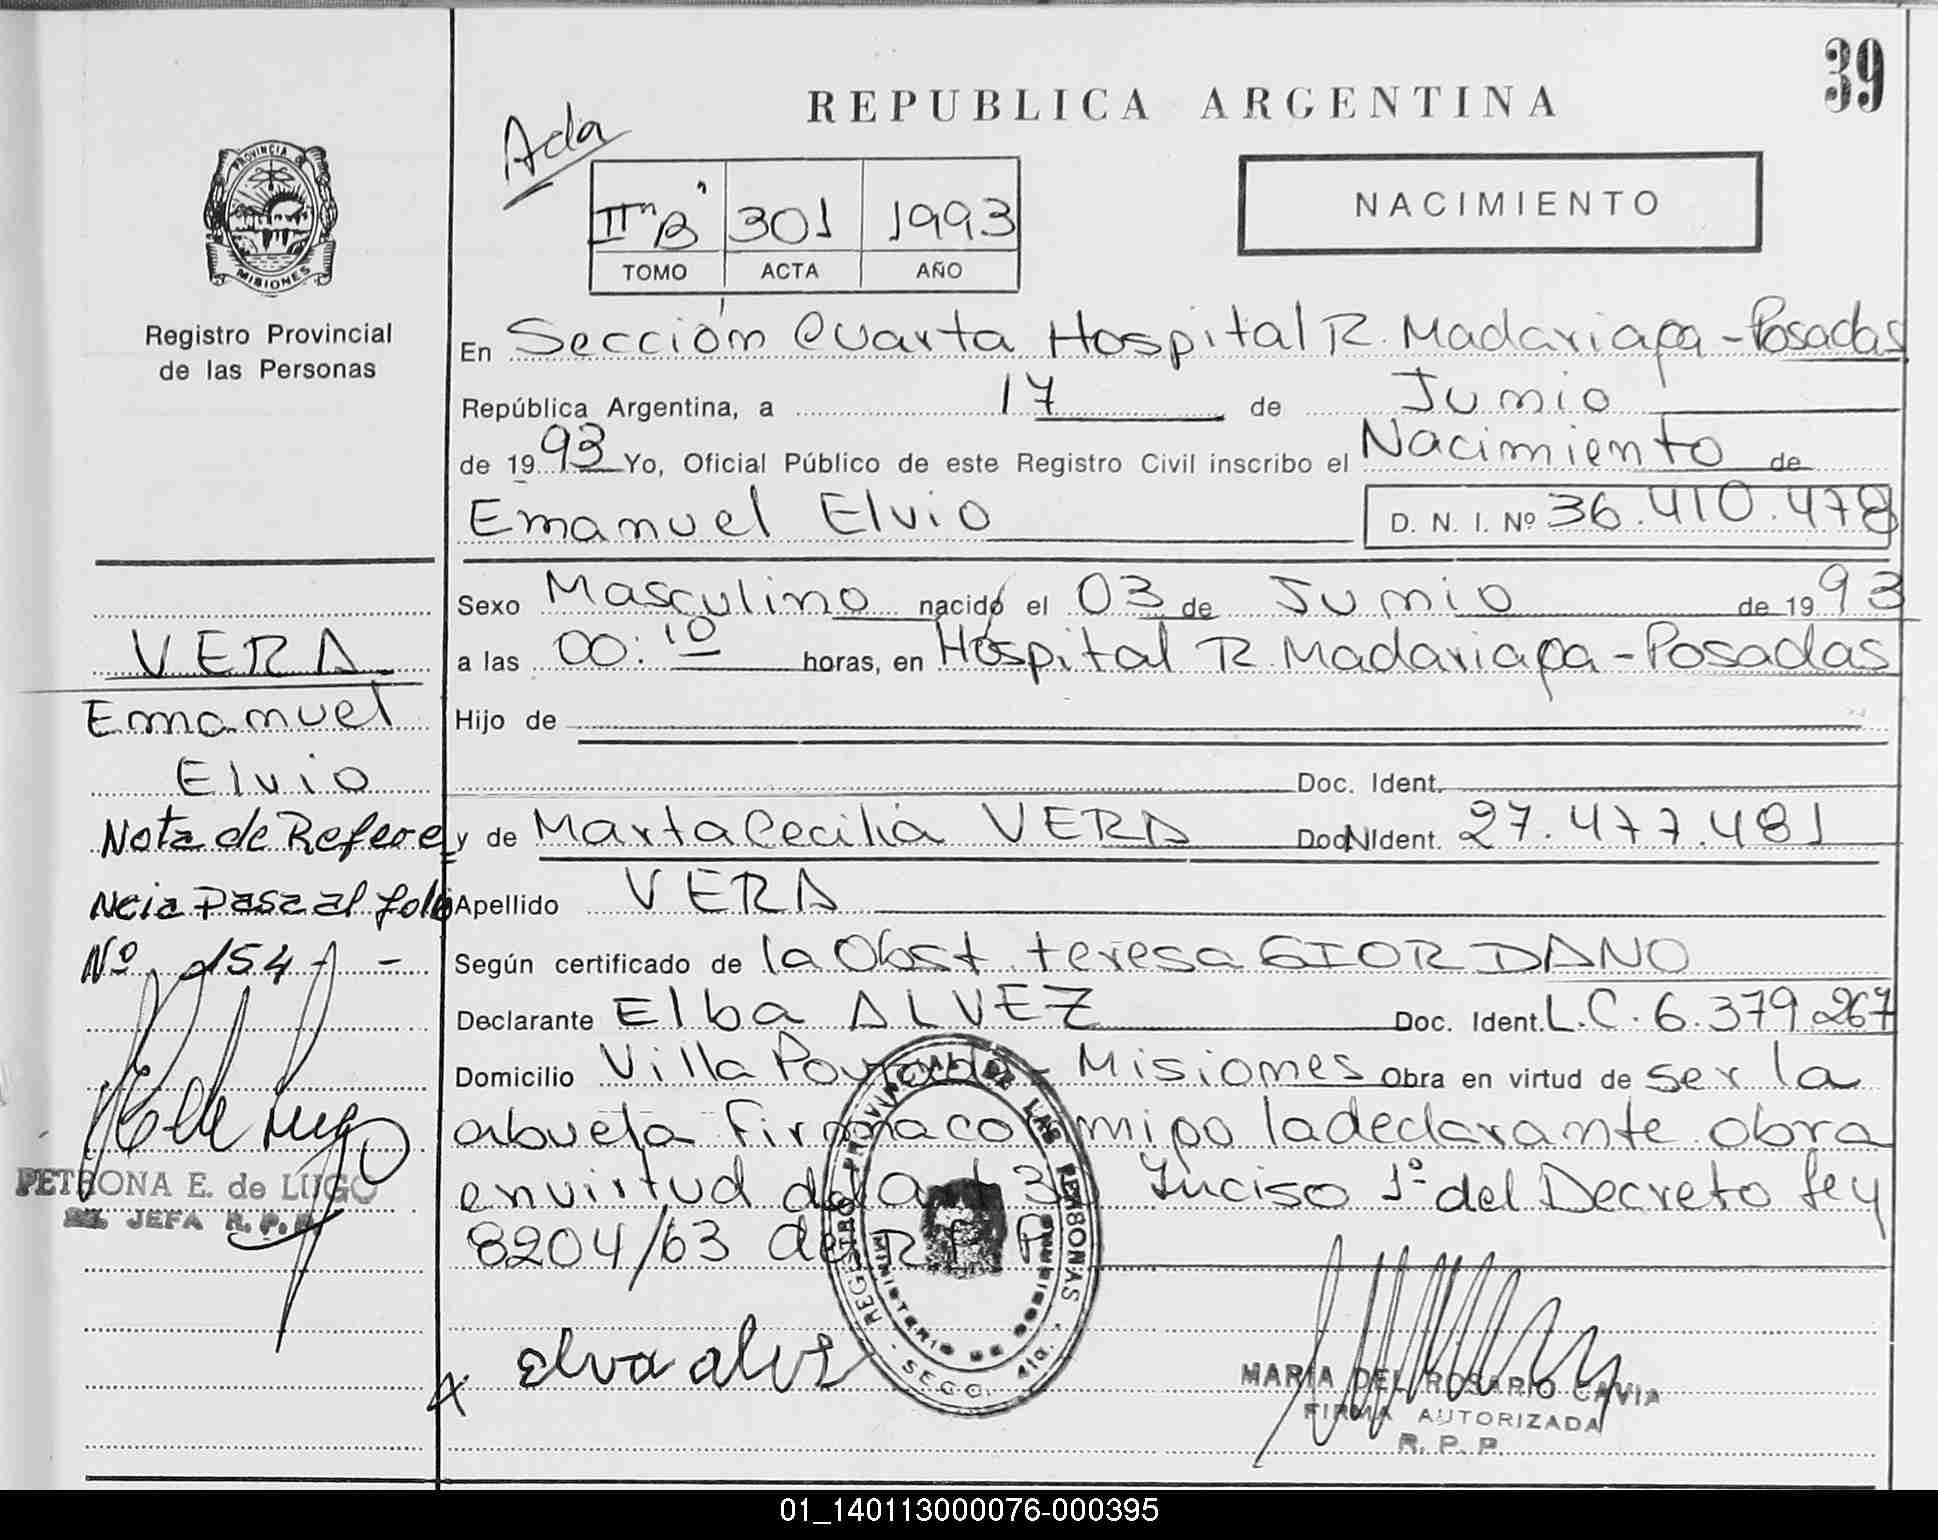 39
REPUBLICA ARGENTINA
Acta
II "B" 301 1993
TOMO ACTA AÑO
NACIMIENTO
PROVINCIA DE
MISIONES
Registro Provincial
de las Personas
En Sección Cuarta Hospital R. Madariaga - Posadas
República Argentina, a 17 de Junio
de 1993 Yo, Oficial Público de este Registro Civil inscribo el Nacimiento de
Emanuel Elvio D. N. I. Nº 36.410.478
Sexo Masculino nacido el 03 de Junio de 1993
a las 00:10 horas, en Hospital R. Madariaga - Posadas
Hijo de
Doc. Ident.
y de Marta Cecilia VERA Doc. Ident. 27.477.481
Apellido VERA
Según certificado de la Obst. teresa GIORDANO
Declarante Elba ALVEZ Doc. Ident. L.C. 6.379.267
Domicilio Villa - Misiones Obra en virtud de ser la
abuela Firma comigo la declarante obra
en virtud del Art 3 Inciso 1º del Decreto ley
8204/63 del R P
VERA
Emanuel
Elvio
Nota de Refere
ncia Pasa al folio
Nº 154 - -
PETRONA E. de LUGO
JEFA R. P. P.
REGISTRO PROVINCIAL DE LAS PERSONAS
MINISTERIO DE GOBIERNO
SECC. 4ta.
elva alves
MARIA DEL ROSARIO CAVIA
FIRMA AUTORIZADA
R. P. P.
01_140113000076-000395